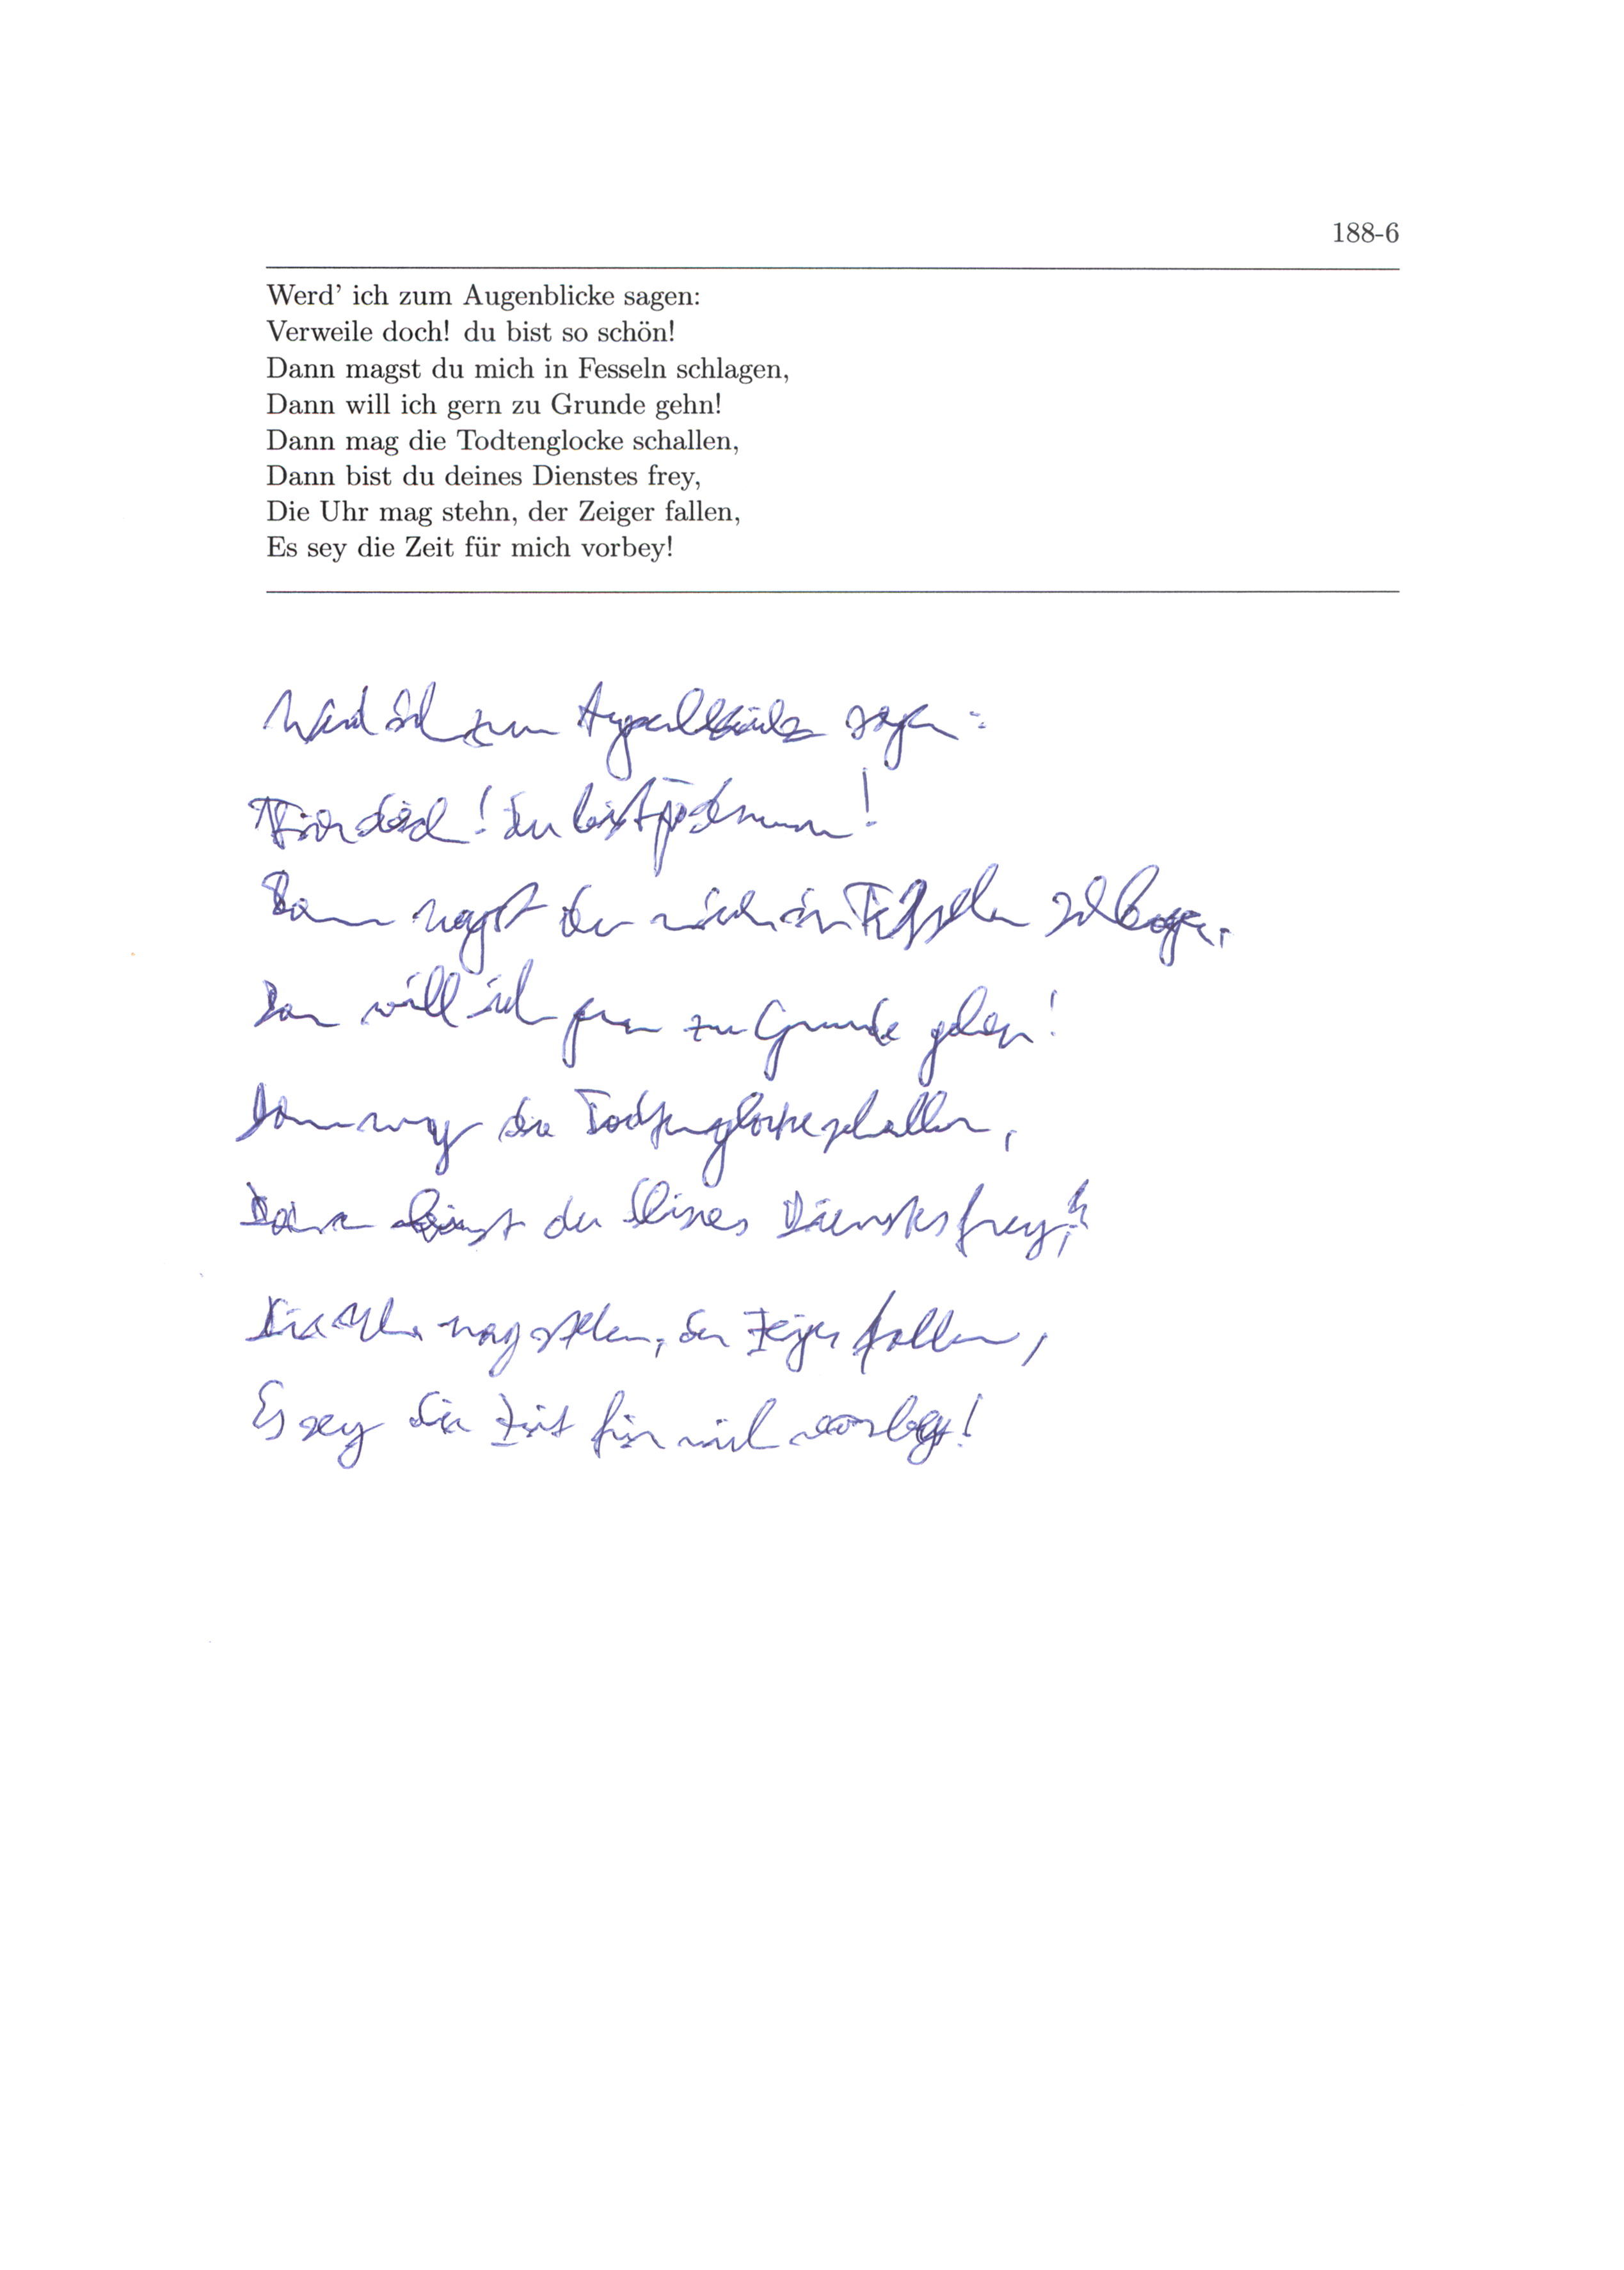 188-6
Werd' ich zum Augenblicke sagen:
Verweile doch! du bist so schön!
Dann magst du mich in Fesseln schlagen,
Dann will ich gern zu Grunde gehn!
Dann mag die Todtenglocke schallen,
Dann bist du deines Dienstes frey,
Die Uhr mag stehn, der Zeiger fallen,
Es sey die Zeit für mich vorbey!
Werd ich zum sagen:
doch! du bist !
Dann magst du mich in Fesseln schlagen,
Dan will ich gern zu Grunde gehen!
Dann mag die Todtenglocke schallen,
Dann bist du deines Dienstes frey,
Die Uhr mag stehen, der Zeiger fallen,
Es sey die Zeit für mich vorbey!